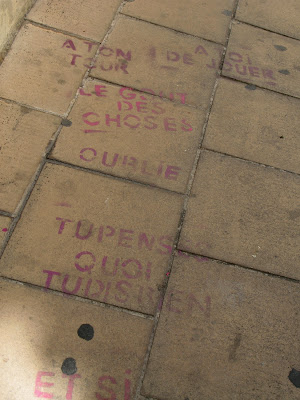 A TON DE A TOI
TOUR JOUER
LE GOUT
DES
CHOSES
OUBLIE
TU PENSES
QUOI
TU DIS RIEN
ET SI